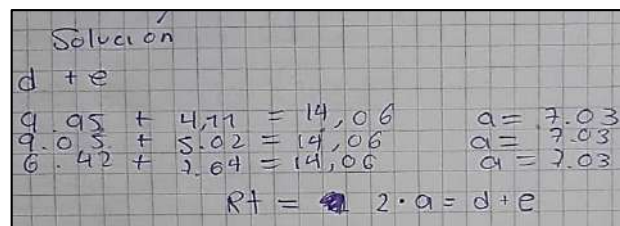 Solución
d + e
9.95 + 4,11 = 14,06 a= 7.03
9.05 + 5.02 = 14,06 a= 7.03
6.42 + 7.64 = 14,06 a= 7.03
Rt = 2·a = d+e